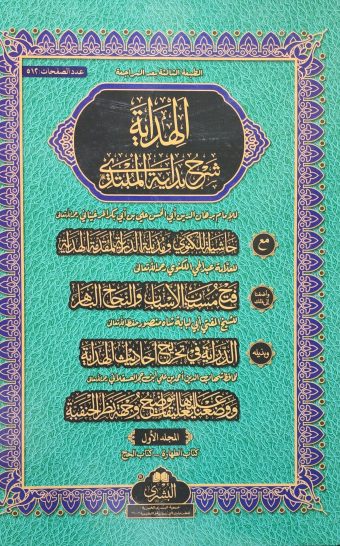 الطبعة الثالثة بعد المراجعة
عدد الصفحات: ٥١٢
الهداية
شرح بداية المبتدي
للإمام برهان الدين أبي الحسن علي بن أبي بكر المرغيناني رحمه الله تعالى
مع
حاشية اللكنوي ومذيلة الدراية لمقدمة الهداية
للعلامة عبد الحي اللكنوي رحمه الله تعالى
فتح مسبب الأسباب والنجاح
للشيخ المفتي أبي لبابة شاه منصور حفظه الله تعالى
وبذيله
الدراية في تخريج أحاديث الهداية
للحافظ شهاب الدين أحمد بن علي ابن حجر العسقلاني رحمه الله تعالى
المجلد الأول
كتاب الطهارة - كتاب الحج
البشرى